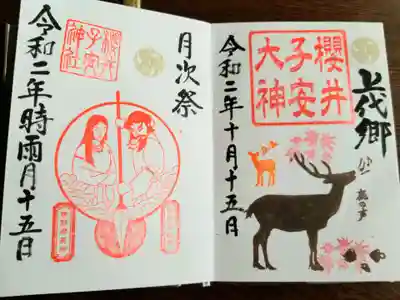 上代郷
櫻井
子安
大神
令和二年十月十五日
月次祭
櫻井
子安
神社
令和二年時雨月十五日